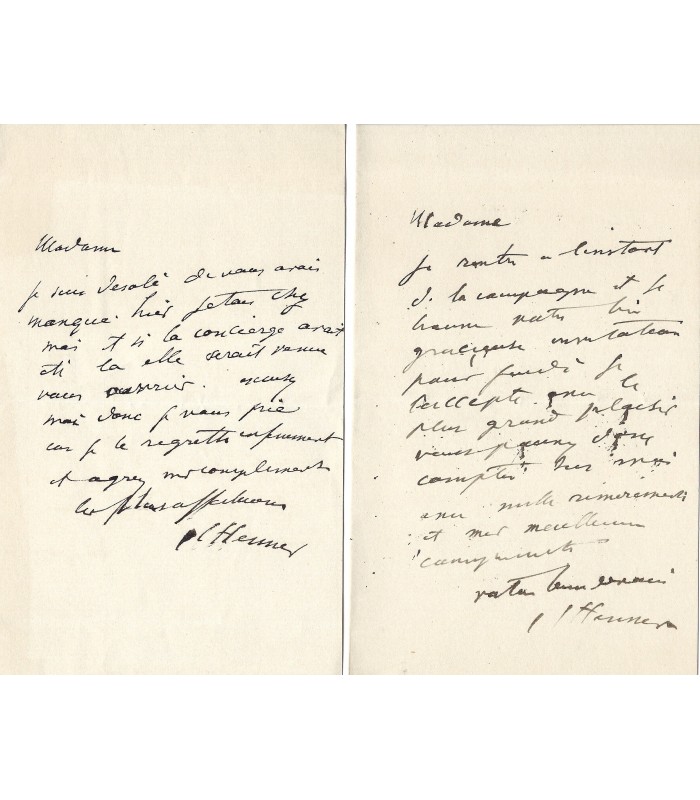 Madame
je suis désolé de vous avoir
manqué hier j'etais chez
moi et si la concierge avait
été là elle serait venue
vous ouvrir. excusez
moi donc je vous prie
car je le regrette infiniment
et agréez mes compliments
les plus affectueux
JJ Henner
Madame
Je rentre a l'instant
de la campagne et je
trouve votre bien
gracieuse invitation
pour jeudi je
l'accepte avec le
plus grand plaisir
vous pouvez donc
compter sur moi
avec mille remerciements
et mes meilleurs
compliments
votre bien dévoué
JJ Henner